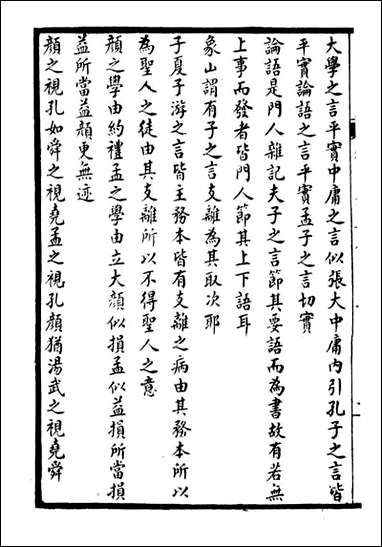 大學之言平實中庸之言似張大中庸内引孔子之言皆
平實論語之言平實孟子之言切實
論語是門人雜記夫子之言節其要語而為書故有若無
上事而發者皆門人節其上下語耳
象山謂有子之言支離為其取次耶
子夏子游之言皆主務本皆有支離之病由其務本所以
為聖人之徒由其支離所以不得聖人之意
顔之學由約禮孟之學由立大顔似損孟似益損所當損
益所當益顔更無迹
顔之視孔如舜之視堯孟之視孔顔猶湯武之視堯舜